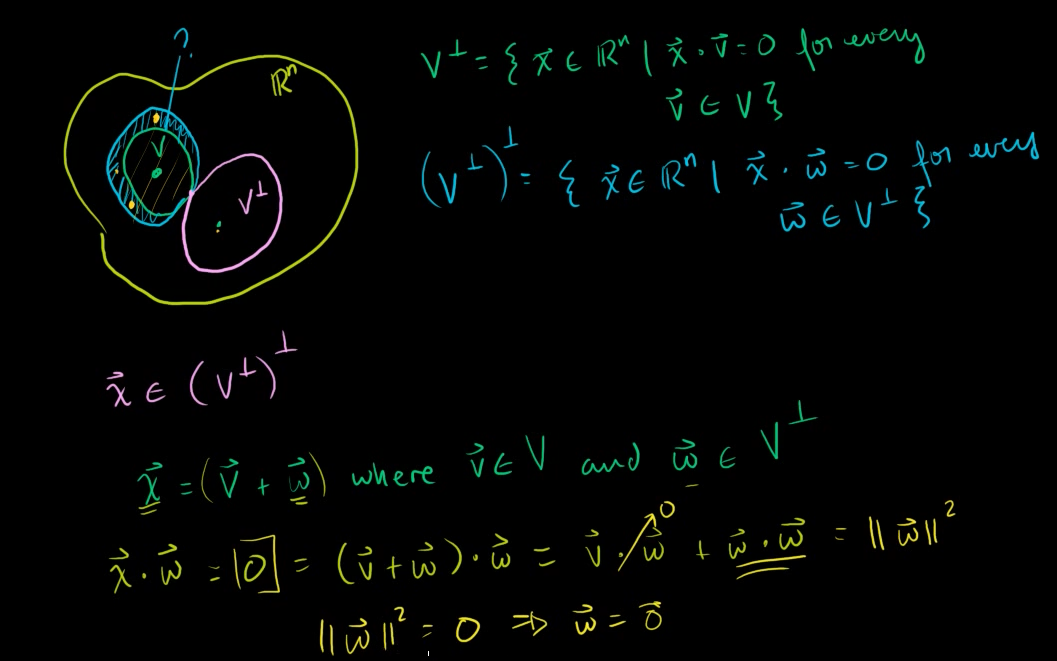 ?
ℝⁿ
V
V⊥
V⊥ = { x⃗ ∈ ℝⁿ | x⃗ · v⃗ = 0 for every
v⃗ ∈ V }
(V⊥)⊥ = { x⃗ ∈ ℝⁿ | x⃗ · w⃗ = 0 for every
w⃗ ∈ V⊥ }
x⃗ ∈ (V⊥)⊥
x⃗ = (v⃗ + w⃗) where v⃗ ∈ V and w⃗ ∈ V⊥
x⃗ · w⃗ = 0 = (v⃗ + w⃗) · w⃗ = v⃗ · w⃗ 0 + w⃗ · w⃗ = ||w⃗||²
||w⃗||² = 0 ⇒ w⃗ = 0⃗